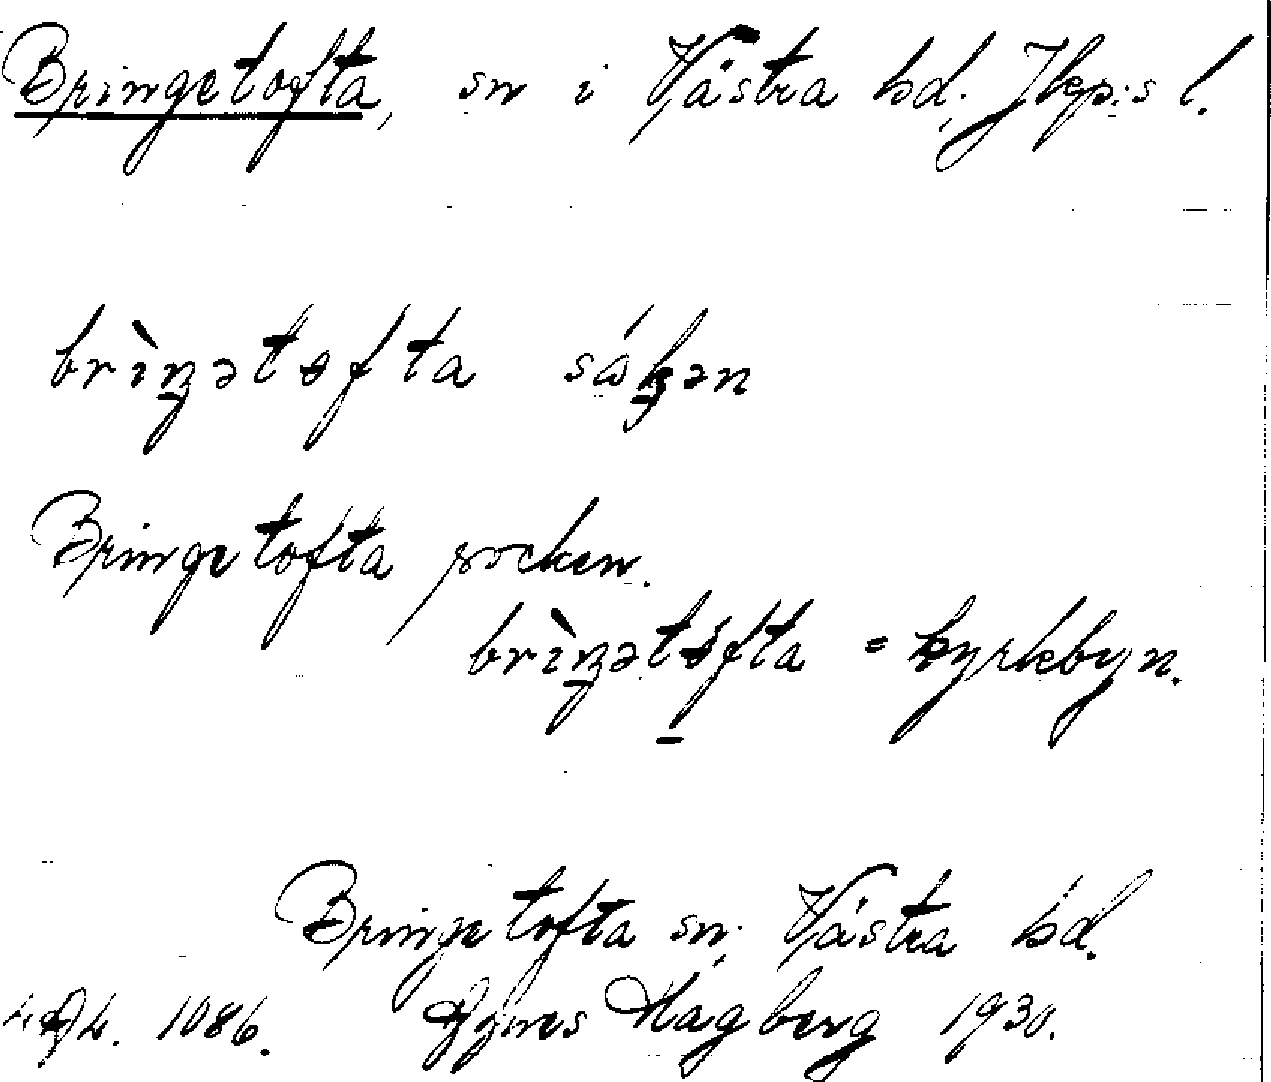 Bringetofta, sn i Västra hd, Jkp:s l.
brìŋətofta såkən
Bringetofta socken.
brìŋətofta = kyrkbyn.
Bringetofta sn, Västra hd.
1086. Agnes Hagberg 1930.